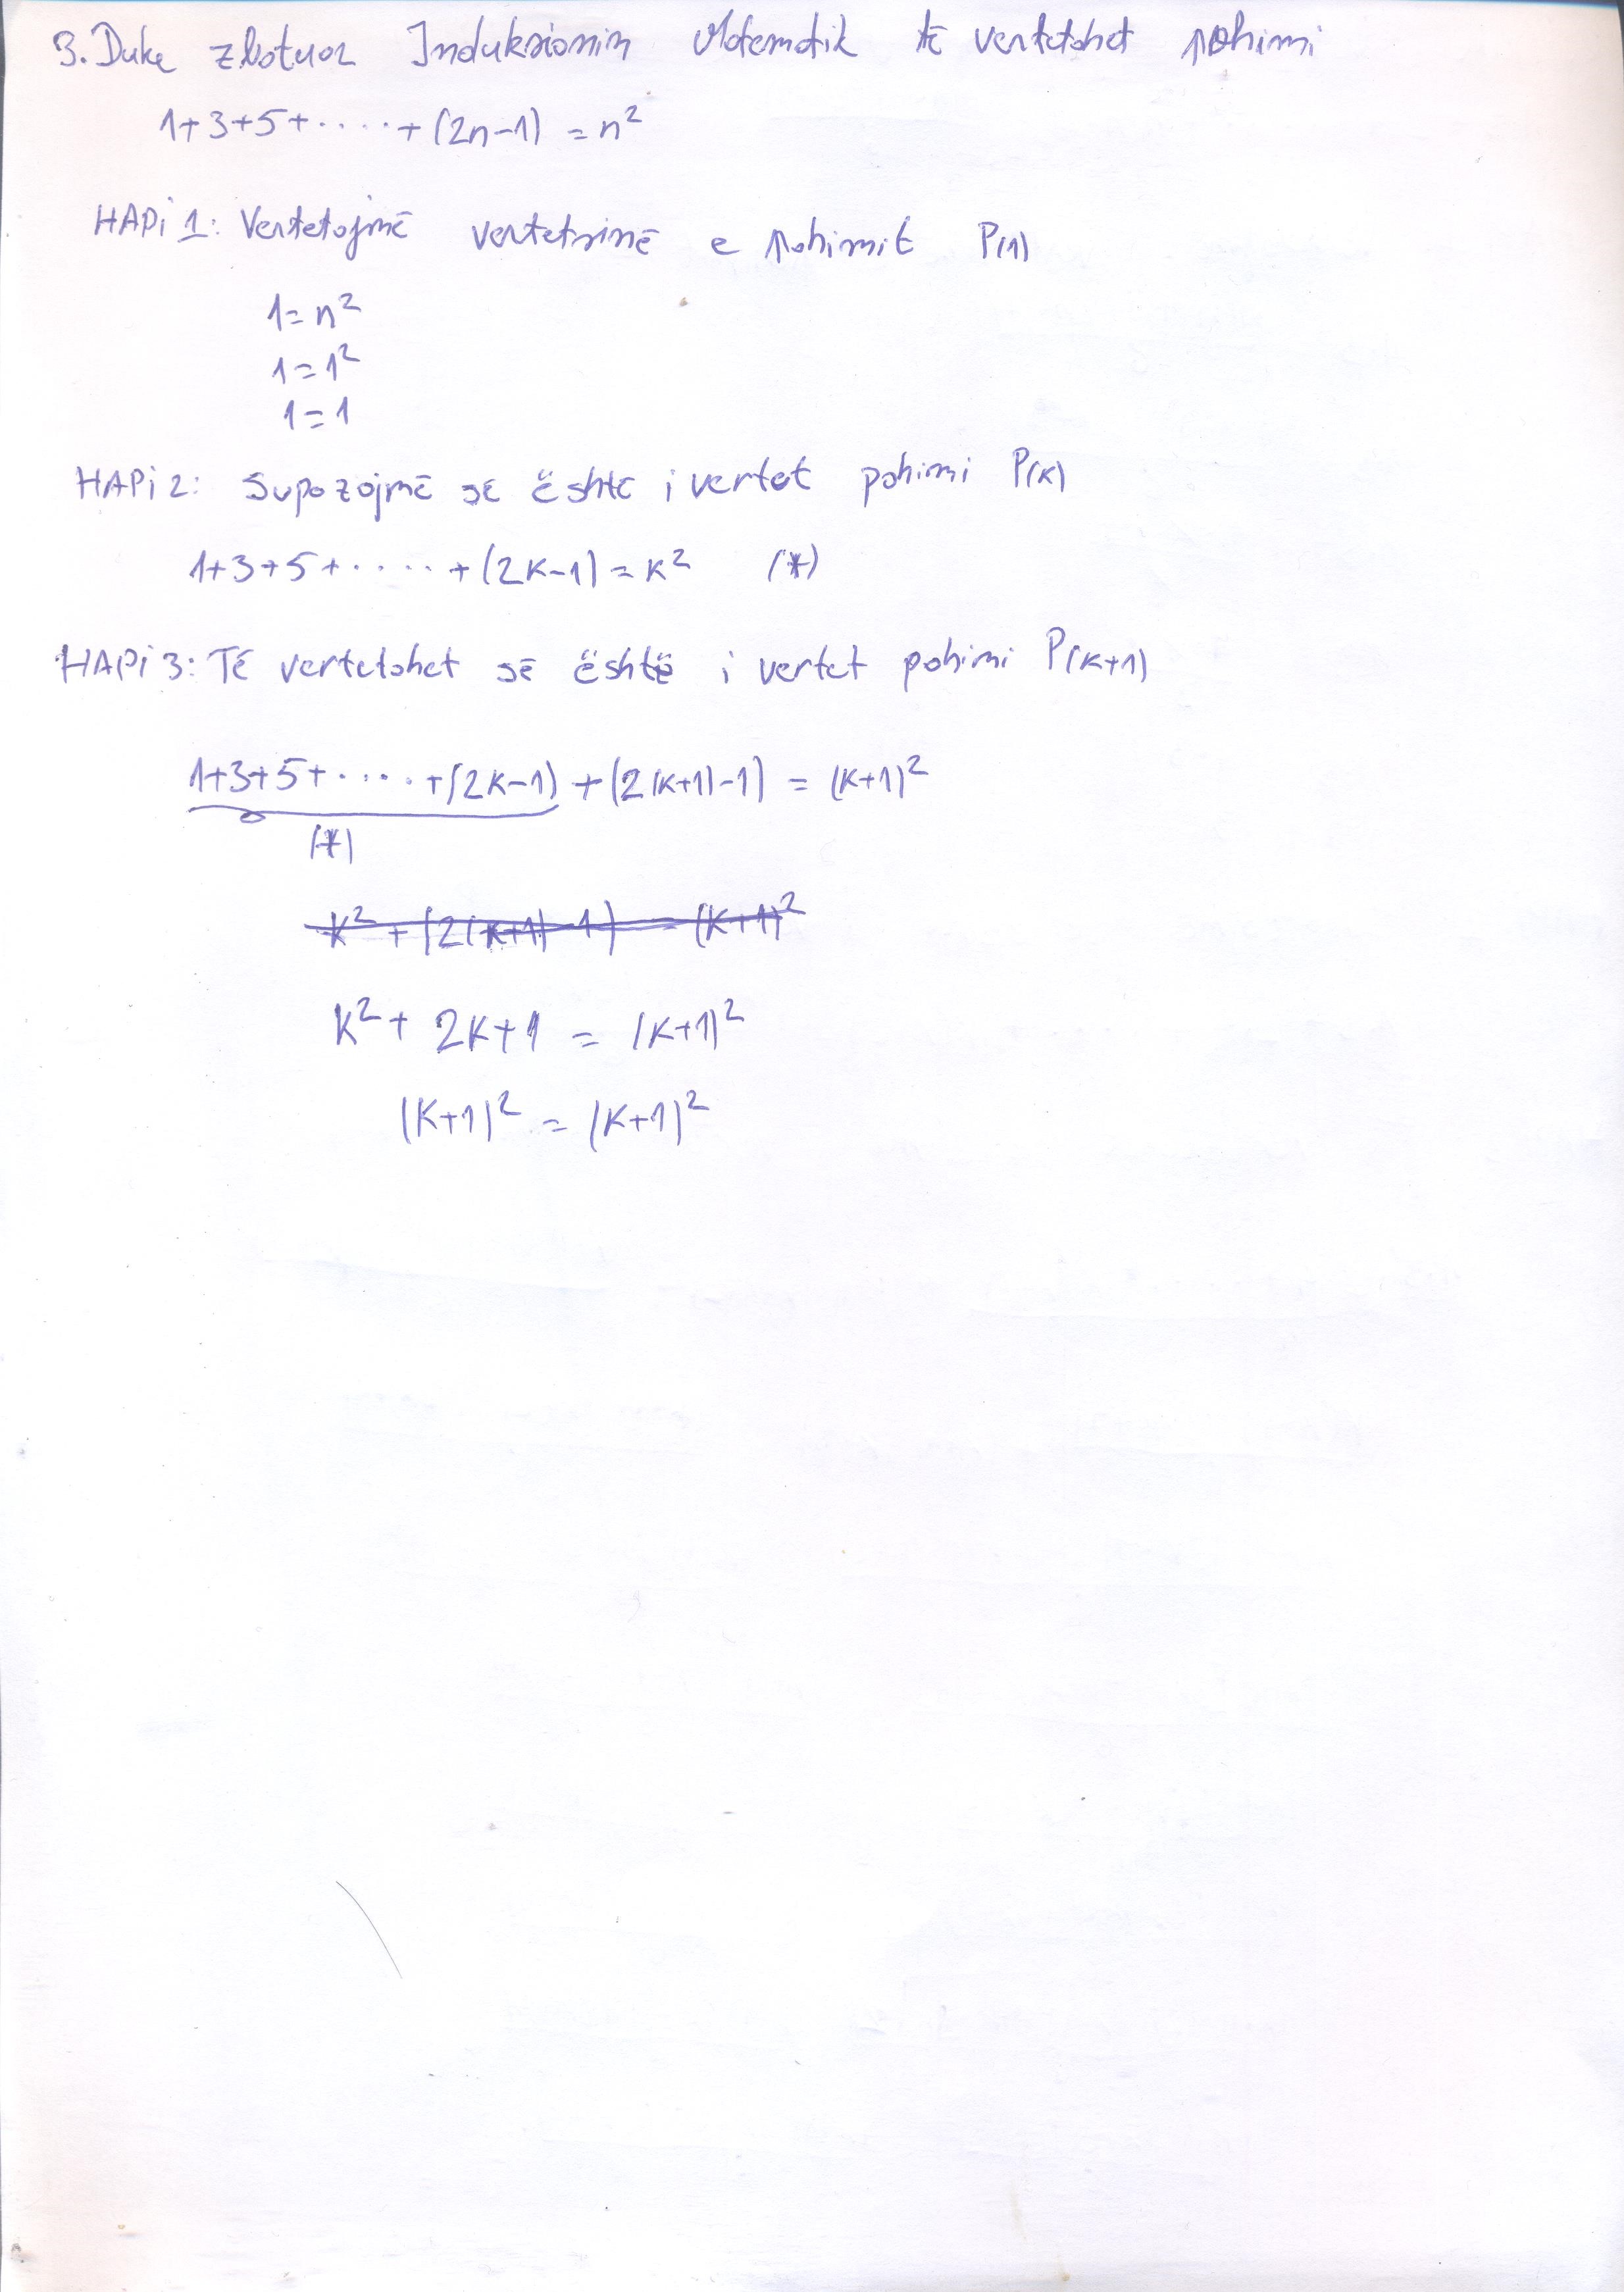 3. Duke zbatuar Induksionin Matematik të vertetohet pohimi
1+3+5+.....+(2n-1) = n²
HAPi 1: Vertetojmë vertetsinë e pohimit P(1)
1=n²
1=1²
1=1
HAPi 2: Supozojmë se është i vertet pohimi P(k)
1+3+5+.....+(2k-1)=k² (*)
HAPi 3: Të vertetohet së është i vertet pohimi P(k+1)
1+3+5+.....+(2k-1)+(2(k+1)-1) = (k+1)²
(*)
k² + (2(k+1)-1) = (k+1)²
k² + 2k+1 = (k+1)²
(k+1)² = (k+1)²